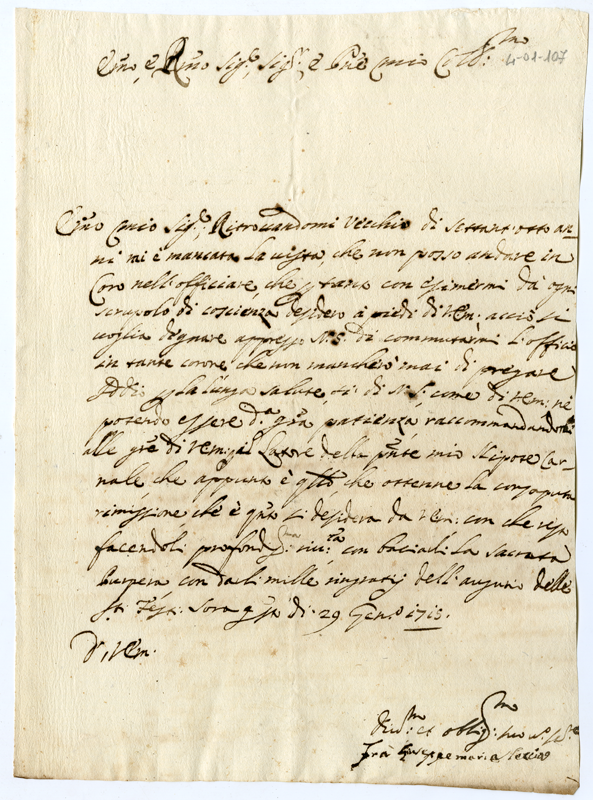 Emo, e Rmo Sigr, Sigr e Pne mio Coll:mo
4-01-107
Emo mio Sigr; Ritrovandomi Vecchio di settant'otto an-
ni mi è mancata la vista, che non posso andare in
Coro nell'officiare, che tanto con esimermi da ogni
scrupolo di coscienza desidero à piedi di Vem: acciò si
voglia degnare appresso N.S. di commutarmi l'officio
in tante corone, che non mancherò mai di pregare
Iddio la lunga salute, di N.S; come di Vem: nè
potendo essere patienza, raccommandandomi
alle gre di Vem: il Latore della pnte mio Nipote Car-
nale che appunto è qllo che ottenne la consaputa
rimissione, che è qnto si desidera da Vem: con che
facendoli profondma riv:za con baciarli la Sacrata
Purpera con darli mille ringratij dell'augurio delle
Ste Feste. Sora qsto dì 29 Geno 1713.
D. Vem:
Divmo et obligmo
Frà Giuseppe maria